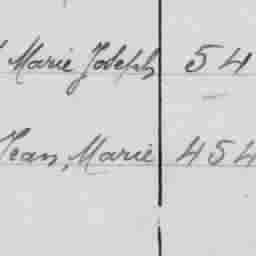 Marie Joseph 54
Jean, Marie 454